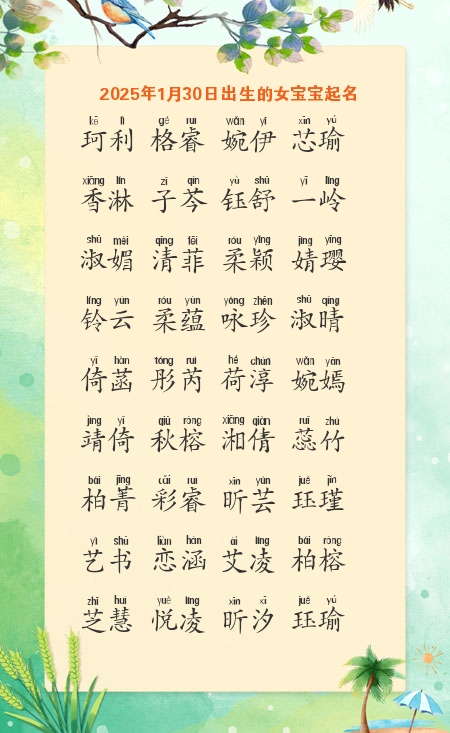 2025年1月30日出生的女宝宝起名
kē lì gé ruì wǎn yī xīn yú
珂利 格睿 婉伊 芯瑜
xiāng lín zǐ qín yù shū yī líng
香淋 子芩 钰舒 一岭
shū mèi qīng fēi róu yǐng jìng yīng
淑媚 清菲 柔颖 婧璎
líng yún róu yùn yǒng zhēn shū qíng
铃云 柔蕴 咏珍 淑晴
yǐ hàn tóng ruì hé chún wǎn yān
倚菡 彤芮 荷淳 婉嫣
jìng yǐ qiū róng xiāng qiàn ruǐ zhú
靖倚 秋榕 湘倩 蕊竹
bǎi jīng cǎi ruì xīn yún jué jǐn
柏菁 彩睿 昕芸 珏瑾
yì shū liàn hán ài líng bǎi róng
艺书 恋涵 艾凌 柏榕
zhī huì yuè líng xīn xī jué yú
芝慧 悦凌 昕汐 珏瑜